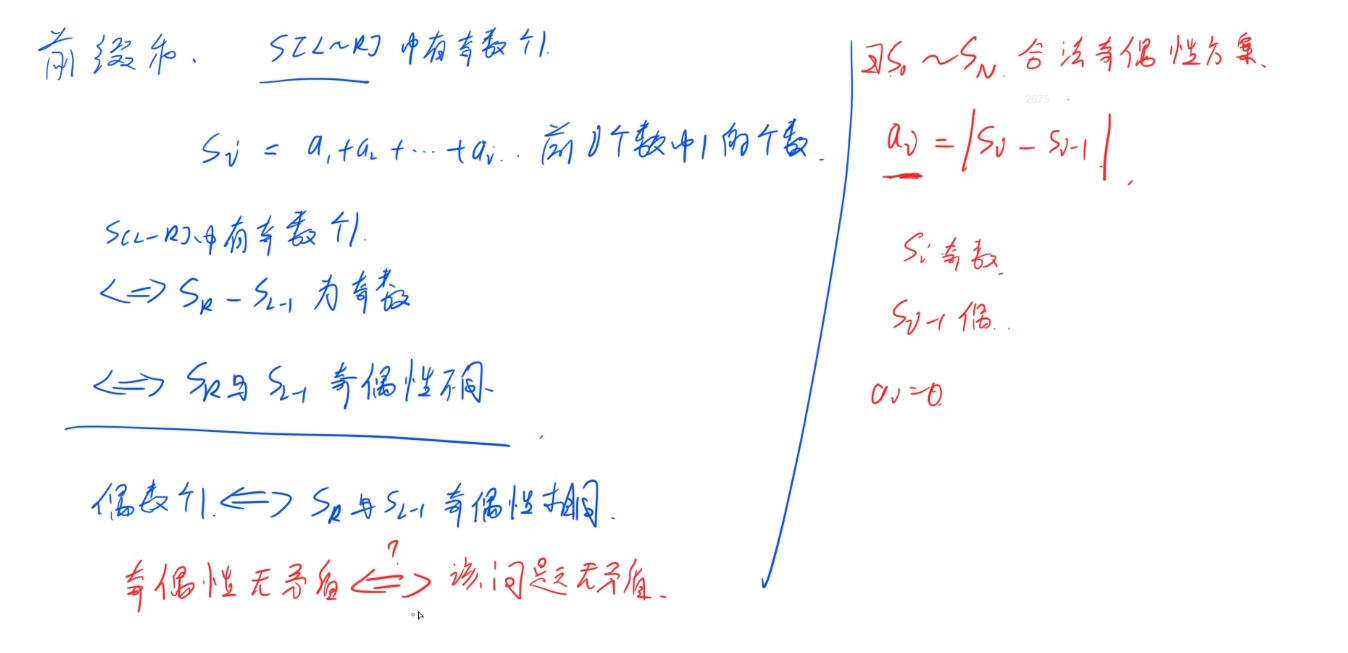 前缀和. S[L~R]中有奇数个1.
Si = a1+a2+…+ai.. 前i个数中1的个数.
S[L-R]中有奇数个1.
<=> SR - SL-1 为奇数
<=> SR与SL-1 奇偶性不同.
偶数个1. <=> SR与SL-1 奇偶性相同.
?
奇偶性无矛盾 <=> 该问题无矛盾.
S0 ~ SN. 合法奇偶性方案.
2675
ai = |Si - Si-1|.
Si 奇数.
Si-1 偶..
ai=0